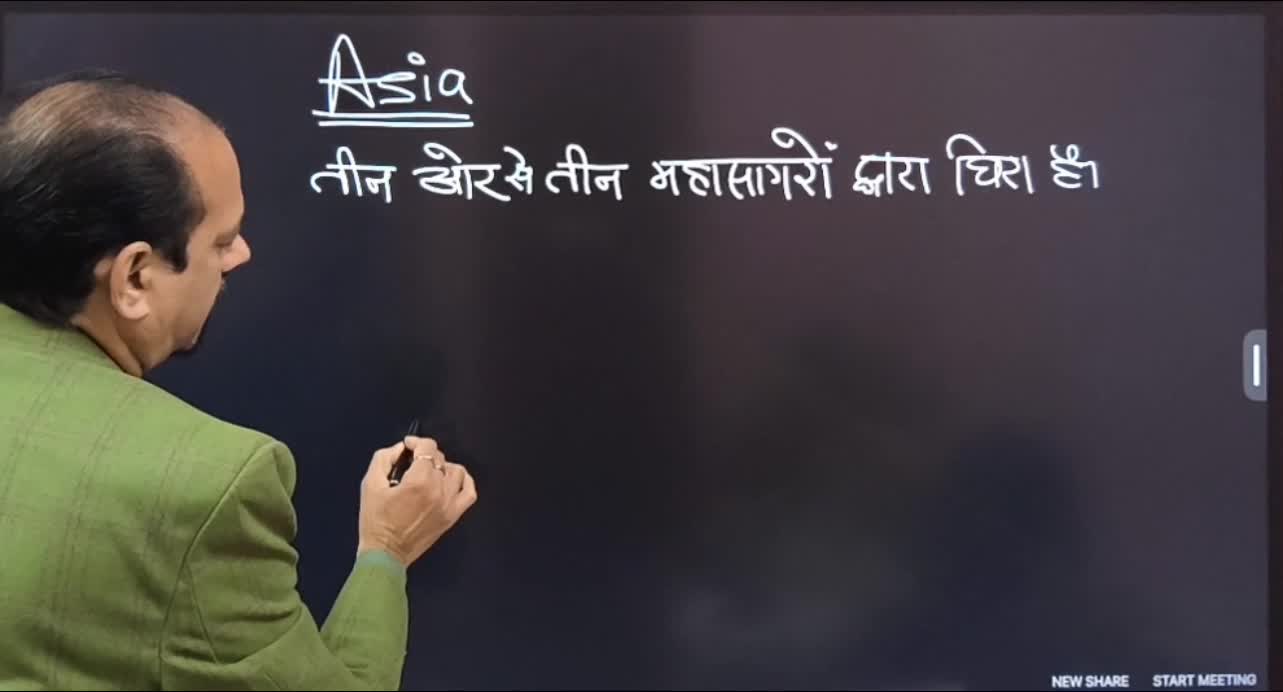 Asia
तीन ओर से तीन महासागरों द्वारा घिरा है।
NEW SHARE START MEETING